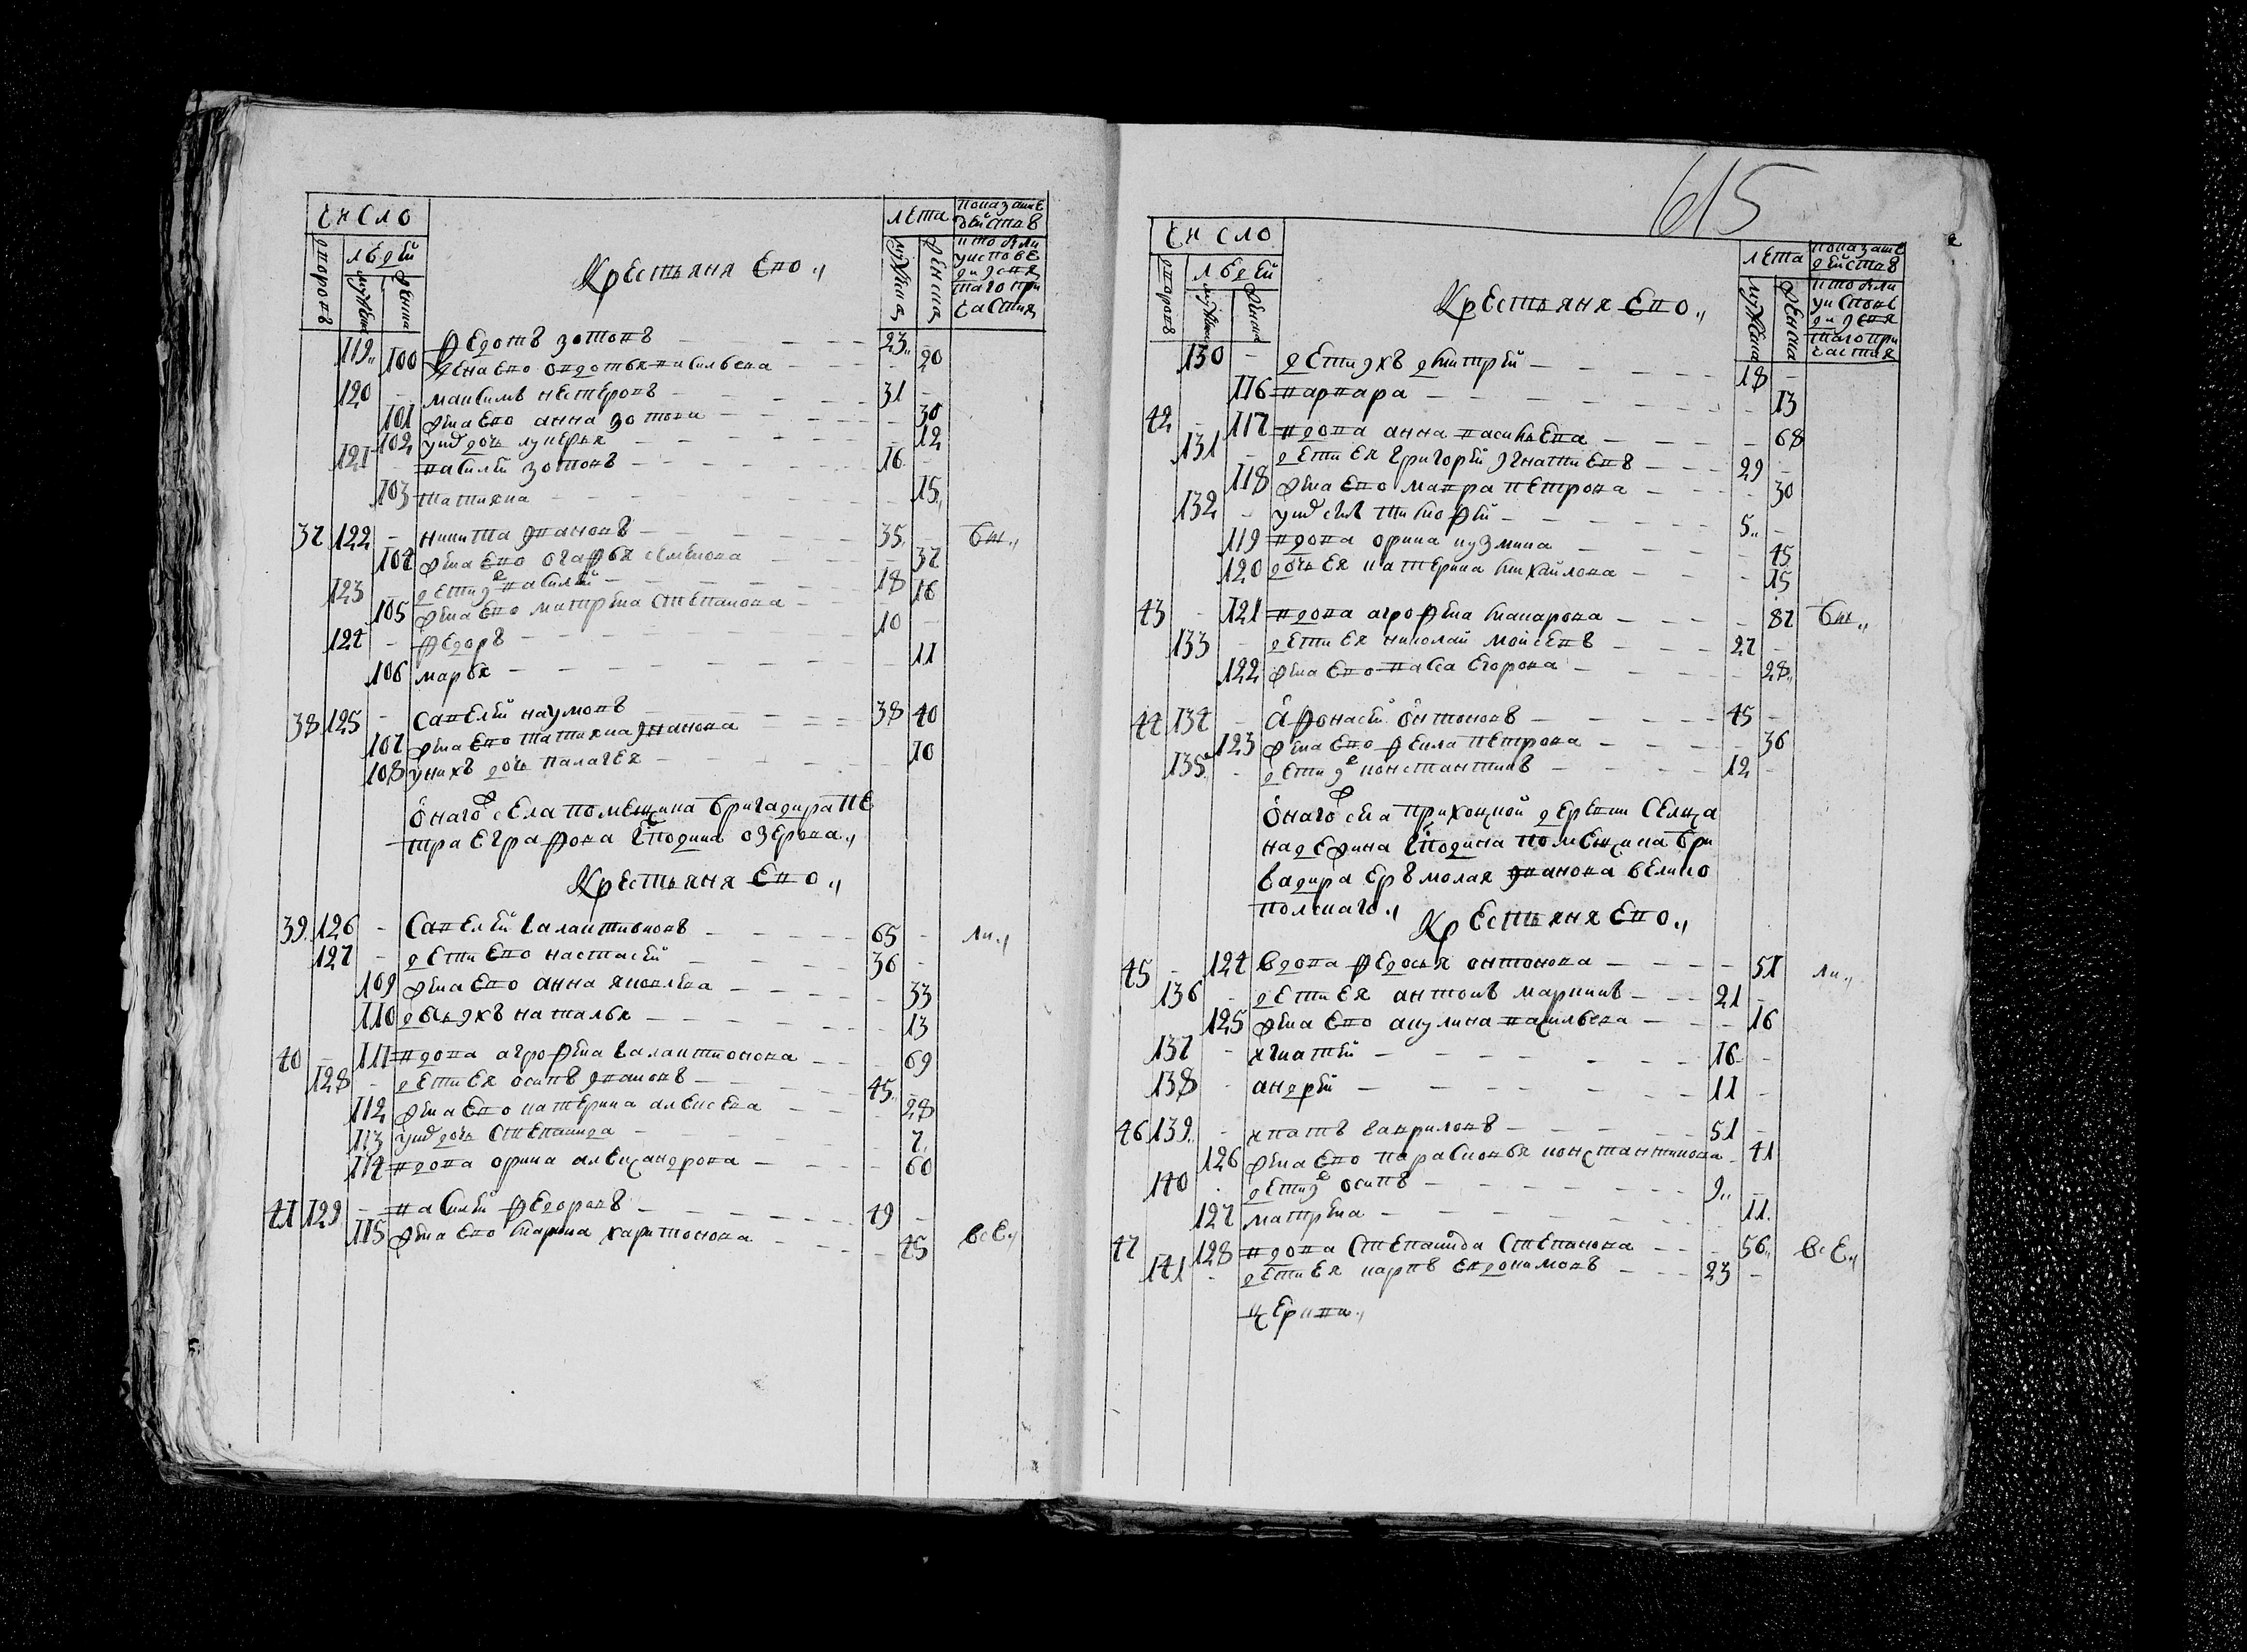 число
дворовъ
людей
мужеска
женска
Крестьяня ево
лета
мужеска
женска
показание
действъ
кто были
у исповеди
и святаго
причастия
119 Федотъ Зотовъ 23
100 жена ево Овдотья Васильева 20
120 Максимъ Нестеровъ 31
101 жена ево Анна Зотова 30
102 у них дочь Лукерья 12
121 Василей Зотовъ 16
103 Татияна 15
37 122 Никита Иванов 35 бы
104 жена ево Огафья Семенова 37
123 дети их Василей 18
105 жена ево Матрена Степанова 16
124 Федоръ 10
106 Марья 11
38 125 Савелей Наумовъ 38 40
107 жена ево Татияна Иванова
108 у нихъ дочь Палагея 10
Онаго ж села помещика бригадира Пе
тра Еграфова господина Озерова
Крестьяня ево
39 126 Савелей Галактионовъ 65 ли
127 дети ево Настасей 36
109 жена ево Анна Яковлева 33
110 дочь ихъ Наталья 13
40 111 вдова Агрофена Галактионова 69
128 дети ея Осипъ Ивановъ 45
112 жена ево Катерина Алексеева 28
113 у них дочь Степанида 7
114 вдова Орина Александрова 60
41 129 Василей Федоровъ 49
115 жена ево Марина Харитонова 45 все
615
число
дворовъ
людей
мужеска
женска
Крестьяня ево
лета
мужеска
женска
показание
действъ
кто были
у исповеди
и святаго
причастия
130 дети ихъ Дмитрей 18
116 Варвара 13
42 117 вдова Анна Васильева 68
131 дети ея Григорей Игнатиевъ 29
118 жена ево Мавра Петрова 30
132 у них сынъ Тимофей 5
119 вдова Орина Кузмина 45
120 дочь ея Катерина Михайлова 15
43 121 вдова Агрофена Макарова 87 бы
133 дети ея Николай Мойсеевъ 27
122 жена ево Васса Егорова 28
44 134 Афонасей Онтоновъ 45
123 жена ево Фекла Петрова 36
135 дети их Констаттинъ 12
Онаго ж села приходской деревни селца
Надежина господина помещика бри
гадира Ермолая Иванова Велико
полскаго
Крестьяня ево
45 124 вдова Федосья Онтонова 51 ли
136 дети ея Антонъ Маркинъ 21
125 жена ево Акулина Васильева 16
137 Игнатей 16
138 Андрей 11
46 139 Ипатъ Гавриловъ 51
126 жена ево Парасковья Констаннтинова 41
140 дети их Осипъ 9
127 Матрена 11
47 128 вдова Степанида Степанова 56 все
141 дети ея Карпъ Евдокимовъ 23
церкви